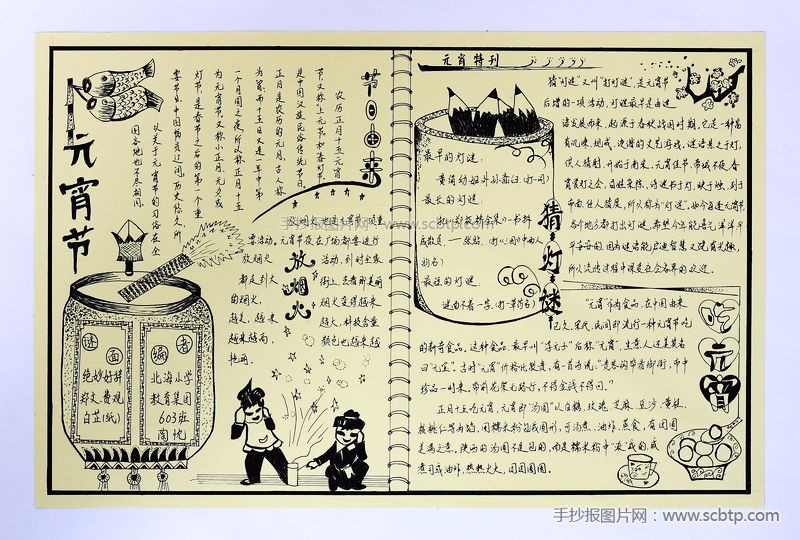 元宵节
节日由来
农历正月十五元宵
节又称上元节和春灯节
是中国汉族民俗传统节日
正月是农历的元月,古人称
为宵,而十五日又是一年中第
一个月圆之夜,所以称正月十五
为元宵节。又称小正月、元夕或
灯节,是春节之后的第一个重
要节日,中国幅员辽阔,历史悠久,所
以关于元宵节的习俗在全
国各地也不尽相同。
放烟火
要活动。元宵节夜在广场都要进行
放烟火
活动,到时全家
都走到大
街上,去看那美丽
的烟火。
烟火变得越来
越美,越来
越大,科技含量
越来越高,
颜色也越来越
艳丽。
谜面
绝妙好辞
郑文费观
白芷(纸)
编者
北海小学
教育集团
603班
元宵特刊
最早的灯谜:
黄绢幼妇外孙齑臼(打一词)
最长的灯谜:
最短的灯谜:
谜面不着一字,(打一草药名)
猜灯谜
猜“灯谜”又叫“打灯谜”是元宵节
后增的一项活动,灯谜最早是由谜
语发展而来,起源于春秋战国时期。它是一种富
有讥谏、规戒、诙谐的文艺游戏。谜语悬之于灯,
供人猜射,开始于南宋。元宵佳节,帝城不夜,春
宵赏灯之会,百姓杂陈,诗谜书于灯,映于烛,列于
通衢,任人猜度,所以称为“灯谜”。如今每逢元宵节,
各个地方都打出灯谜,希望今年能喜气洋洋,平
平安安的。因为谜语能启迪智慧又饶有兴趣,
所以流传过程中深受社会各界的欢迎。
吃元宵
“元宵”作为食品,在中国由来
已久。宋代,民间即流行一种元宵节吃
的新奇食品。这种食品,最早叫“浮元子”后称“元宵”,生意人还美其名
曰“元宝”。古时“元宵”价格比较贵,有一首诗说:“贵客钩帘看御街,市中
珍品一时来。帘前花架无路行,不得金钱不得回。”
正月十五吃元宵,元宵即“汤圆”以白糖、玫瑰、芝麻、豆沙、黄桂、
核桃仁等为馅,用糯米粉包成圆形,可汤煮、油炸、蒸食,有团圆
美满之意。陕西的汤圆不是包的,而是糯米粉中“滚”成的,或
煮司或油炸,热热火火,团团圆圆。
手抄报图片网:www.scbtp.com
手抄报图片网:www.scbtp.com